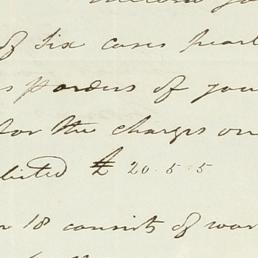 of Six cases pearl
orders of you
for the charges on
£ 20.5.5
18 consists of war